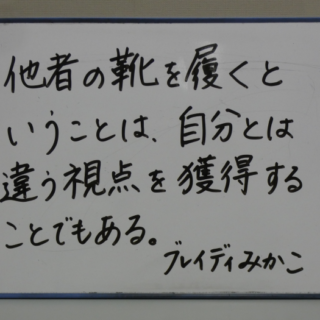 他者の靴を履くと
いうことは、自分とは
違う視点を獲得する
ことでもある。
ブレイディみかこ